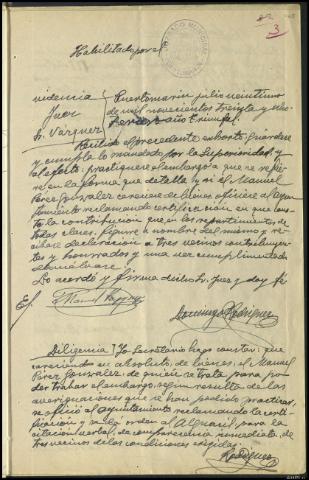 3
Habilitado para el
Providencia
Juez
Sr. Vazquez
Puertomarin julio veintiuno
de mil novecientos treinta y ocho
tercer año triunfal.
Recibido el precedente exhorto guardese
y cumpla lo mandado por la Superioridad y
tal efecto, practiquese el embargo a que se refie
re en la forma que detalla y si el Manuel
Perez Gonzalez carece de bienes oficiese al ayun
tamiento reclamando certificación en que cons
te la contribución que en los repartimientos de
todas clases, figure a nombre del mismo y re
cibase declaración a tres vecinos contribuyen
tes y honrados y una vez cumplimentado
devuelvase.
Lo acordó y firma dicho Sr. Juez y doy fe
E/. Manuel Vazquez
Domingo Rodriguez
Diligencia } Yo Secretario hago constar: que
careciendo en absoluto, de bienes, el Manuel
Perez Gonzalez, de quien se trata para po
der trabar el embargo, segun resulta de las
averiguaciones que se han podido practicar,
se ofició al ayuntamiento reclamando la certi
ficación y se dió orden al Alguacil, para la
citación verbal, de comparecencia inmediata, de
tres vecinos de las condiciones exigidas.
Rodriguez